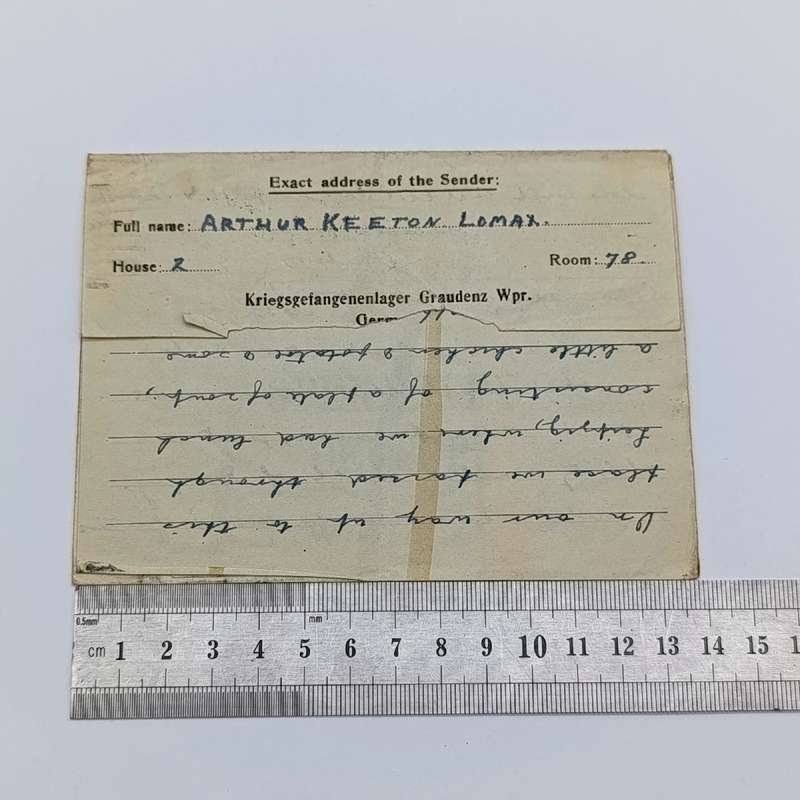 Exact address of the Sender:
Full name: ARTHUR KEETON LOMAX.
House: 2 Room: 78.
Kriegsgefangenenlager Graudenz Wpr.
On our way up to this
place we passed through
Leipzig, where we had lunch
consisting of a plate of soup,
a little chicken & potatoe & some
0.5mm mm
cm 1 2 3 4 5 6 7 8 9 10 11 12 13 14 15